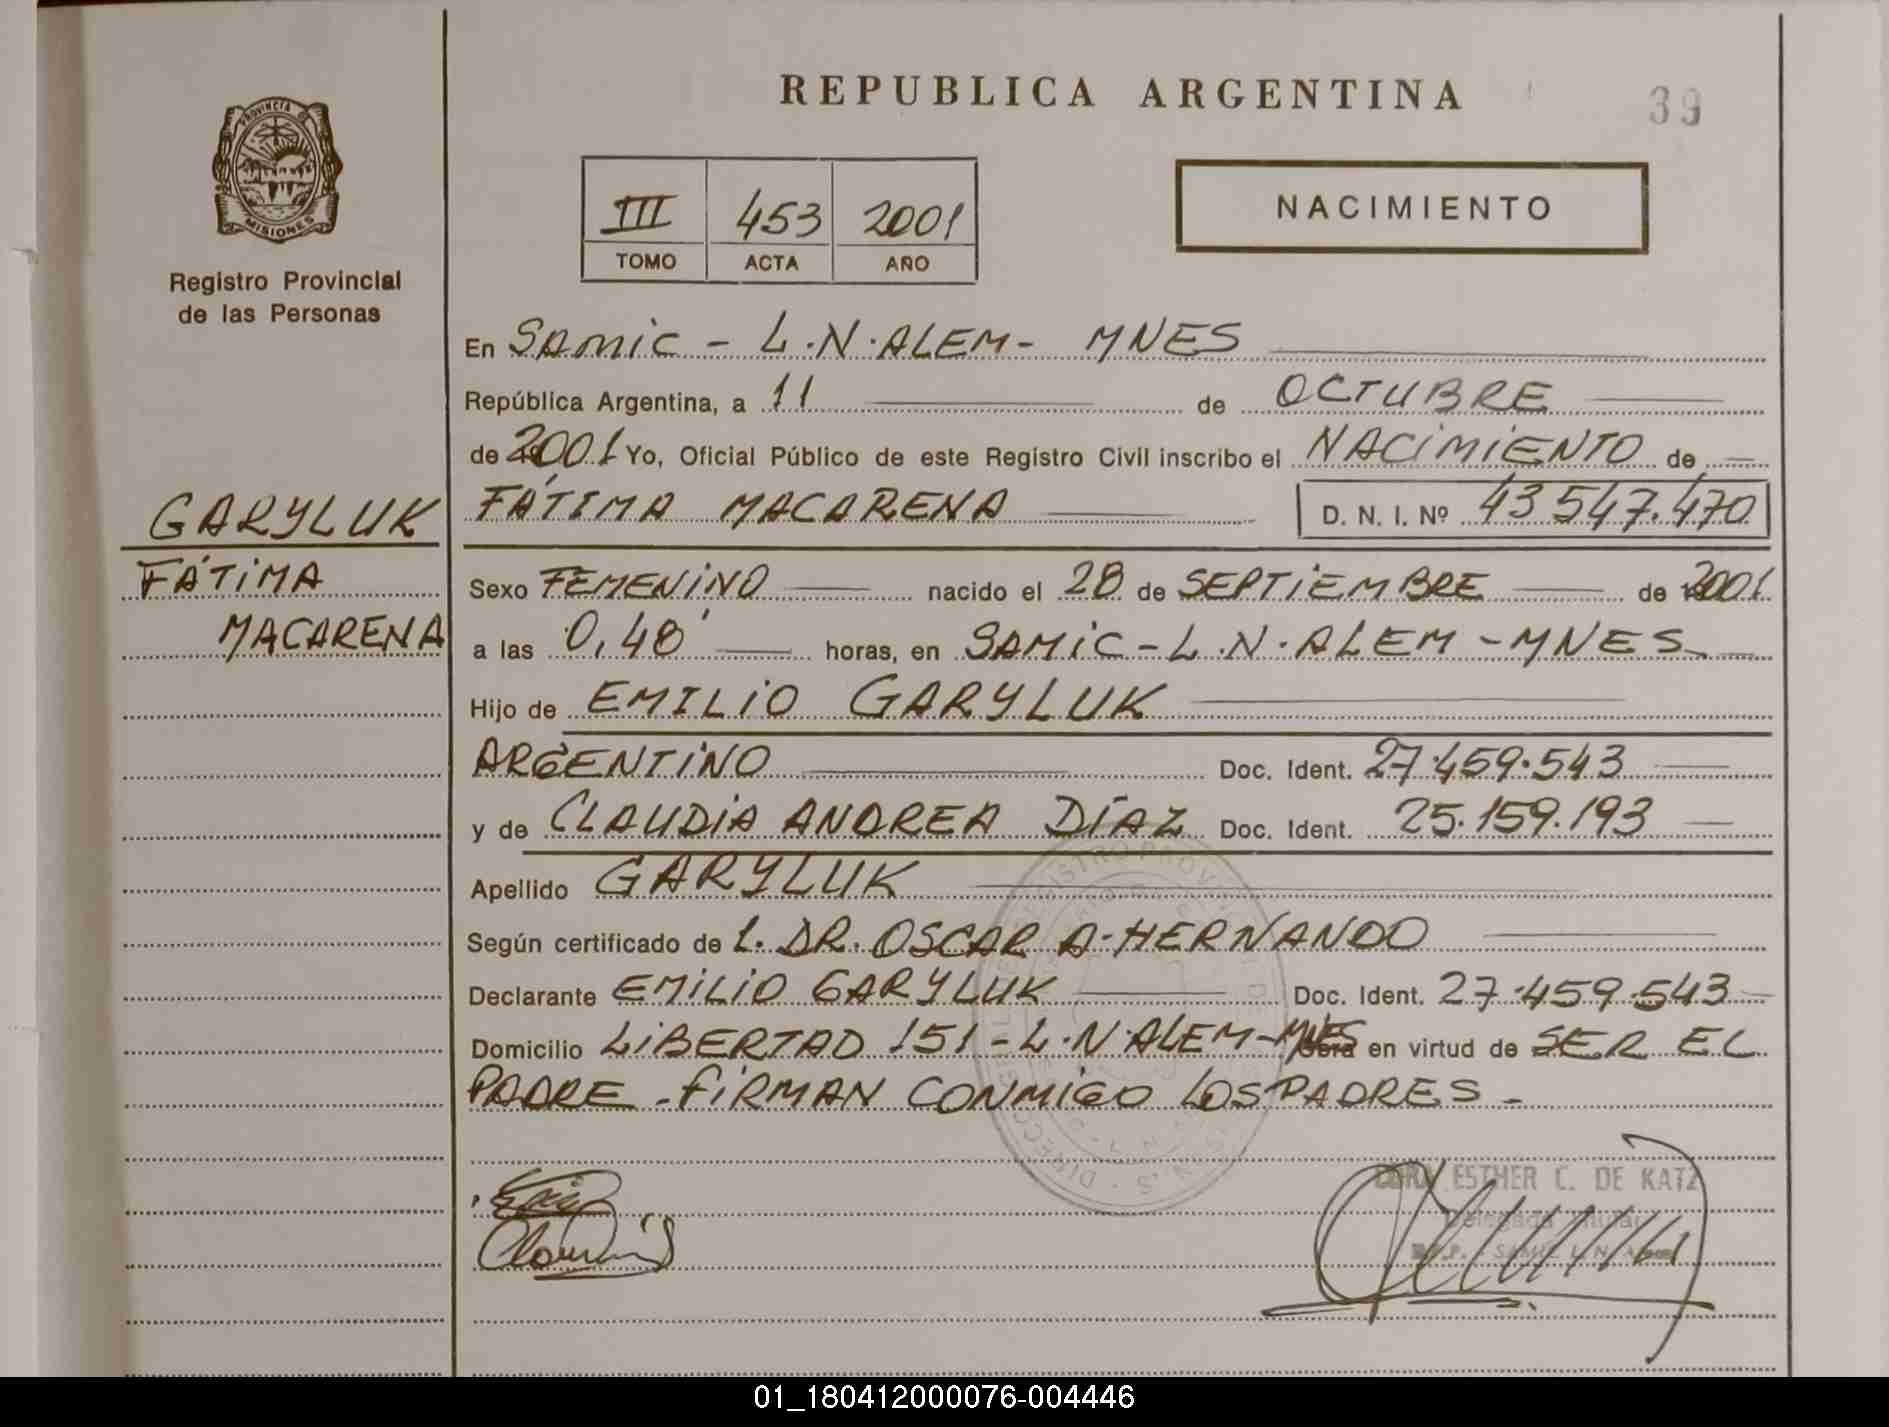 REPUBLICA ARGENTINA
39
PROVINCIA DE
MISIONES
Registro Provincial
de las Personas
III 453 2001
TOMO ACTA AÑO
NACIMIENTO
En SAMIC - L.N. ALEM - MNES
República Argentina, a 11 de OCTUBRE
de 2001 Yo, Oficial Público de este Registro Civil inscribo el NACIMIENTO de
FÁTIMA MACARENA D. N. I. Nº 43547.470
GARYLUK
FÁTIMA
MACARENA
Sexo FEMENINO nacido el 28 de SEPTIEMBRE de 2001
a las 0,48' horas, en SAMIC - L.N. ALEM - MNES
Hijo de EMILIO GARYLUK
ARGENTINO Doc. Ident. 27.459.543
y de CLAUDIA ANDREA DÍAZ Doc. Ident. 25.159.193
Apellido GARYLUK
Según certificado de L. DR. OSCAR A. HERNANDO
Declarante EMILIO GARYLUK Doc. Ident. 27.459.543
Domicilio LIBERTAD 151 - L.N. ALEM - MNES en virtud de SER EL
PADRE - FIRMAN CONMIGO LOS PADRES -
ESTHER C. DE KATZ
Delegada Titular
SAMIC L.N. Alem
01_180412000076-004446